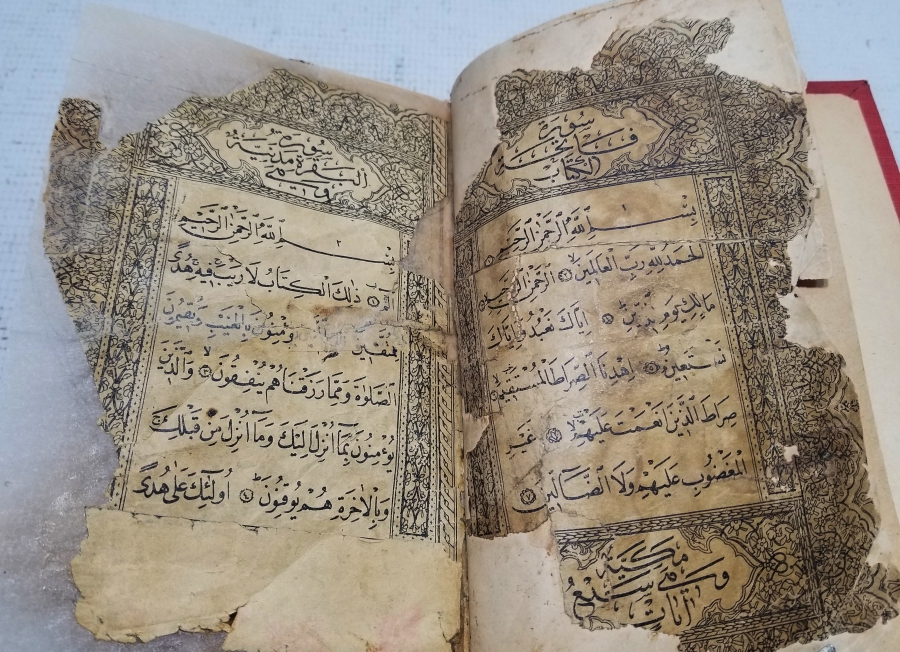 سورة
فاتحة
الكتاب
بِسْمِ اللّٰهِ الرَّحْمٰنِ الرَّحِيمِ
اَلْحَمْدُ لِلّٰهِ رَبِّ الْعَالَمِينَ الرَّحْمٰنِ الرَّحِيمِ
مَالِكِ يَوْمِ الدِّينِ اِيَّاكَ نَعْبُدُ وَاِيَّاكَ
نَسْتَعِينُ اِهْدِنَا الصِّرَاطَ الْمُسْتَقِيمَ
صِرَاطَ الَّذِينَ اَنْعَمْتَ عَلَيْهِمْ غَيْرِ
الْمَغْضُوبِ عَلَيْهِمْ وَلَا الضَّالِّينَ ٧
مكية
وهي سبع
آيات
سورة
البقرة مدنية
وهي
بِسْمِ اللّٰهِ الرَّحْمٰنِ الرَّحِيمِ
ذٰلِكَ الْكِتَابُ لَا رَيْبَ فِيهِ هُدًى
لِلْمُتَّقِينَ يُؤْمِنُونَ بِالْغَيْبِ وَيُقِيمُونَ
الصَّلٰوةَ وَمِمَّا رَزَقْنَاهُمْ يُنْفِقُونَ ٣ وَالَّذِينَ
يُؤْمِنُونَ بِمَا اُنْزِلَ اِلَيْكَ وَمَا اُنْزِلَ مِنْ قَبْلِكَ
وَبِالْاٰخِرَةِ هُمْ يُوقِنُونَ ٤ اُولٰئِكَ عَلٰى هُدًى